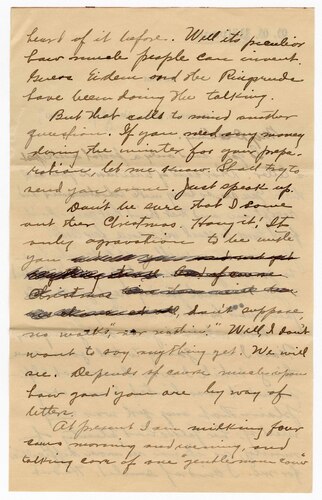 heard of it before. Well it's peculiar
how much people can invent.
Guess Erdem and the Ringruds
have been doing the talking.
But that calls to mind another
question. If you need any money
during the winter for your prepa-
ration, let me know. Shall try to
send you some. Just speak up.
Don't be sure that I come
out ther Christmas. Hang it! Its
only agravation to be with
you
Christmas
don't suppose,
no work", nor nothin'." Well, I don't
want to say anything yet. We will
see. Depends of cause much upon
how good you are by way of
letters.
At present I am milking four
cows morning and evening, and
talking care of one "gentleman cow"